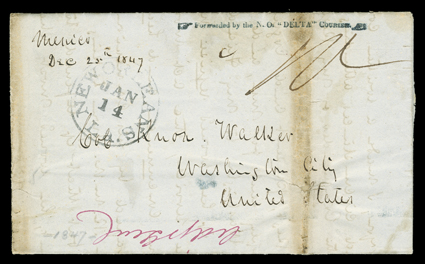 Forwarded by the N. O. "DELTA" Couriers.
Mexico
Dec 25th 1847
NEW ORLEANS LA.
JAN
14
Col Knox. Walker
Washington City
United States
1847